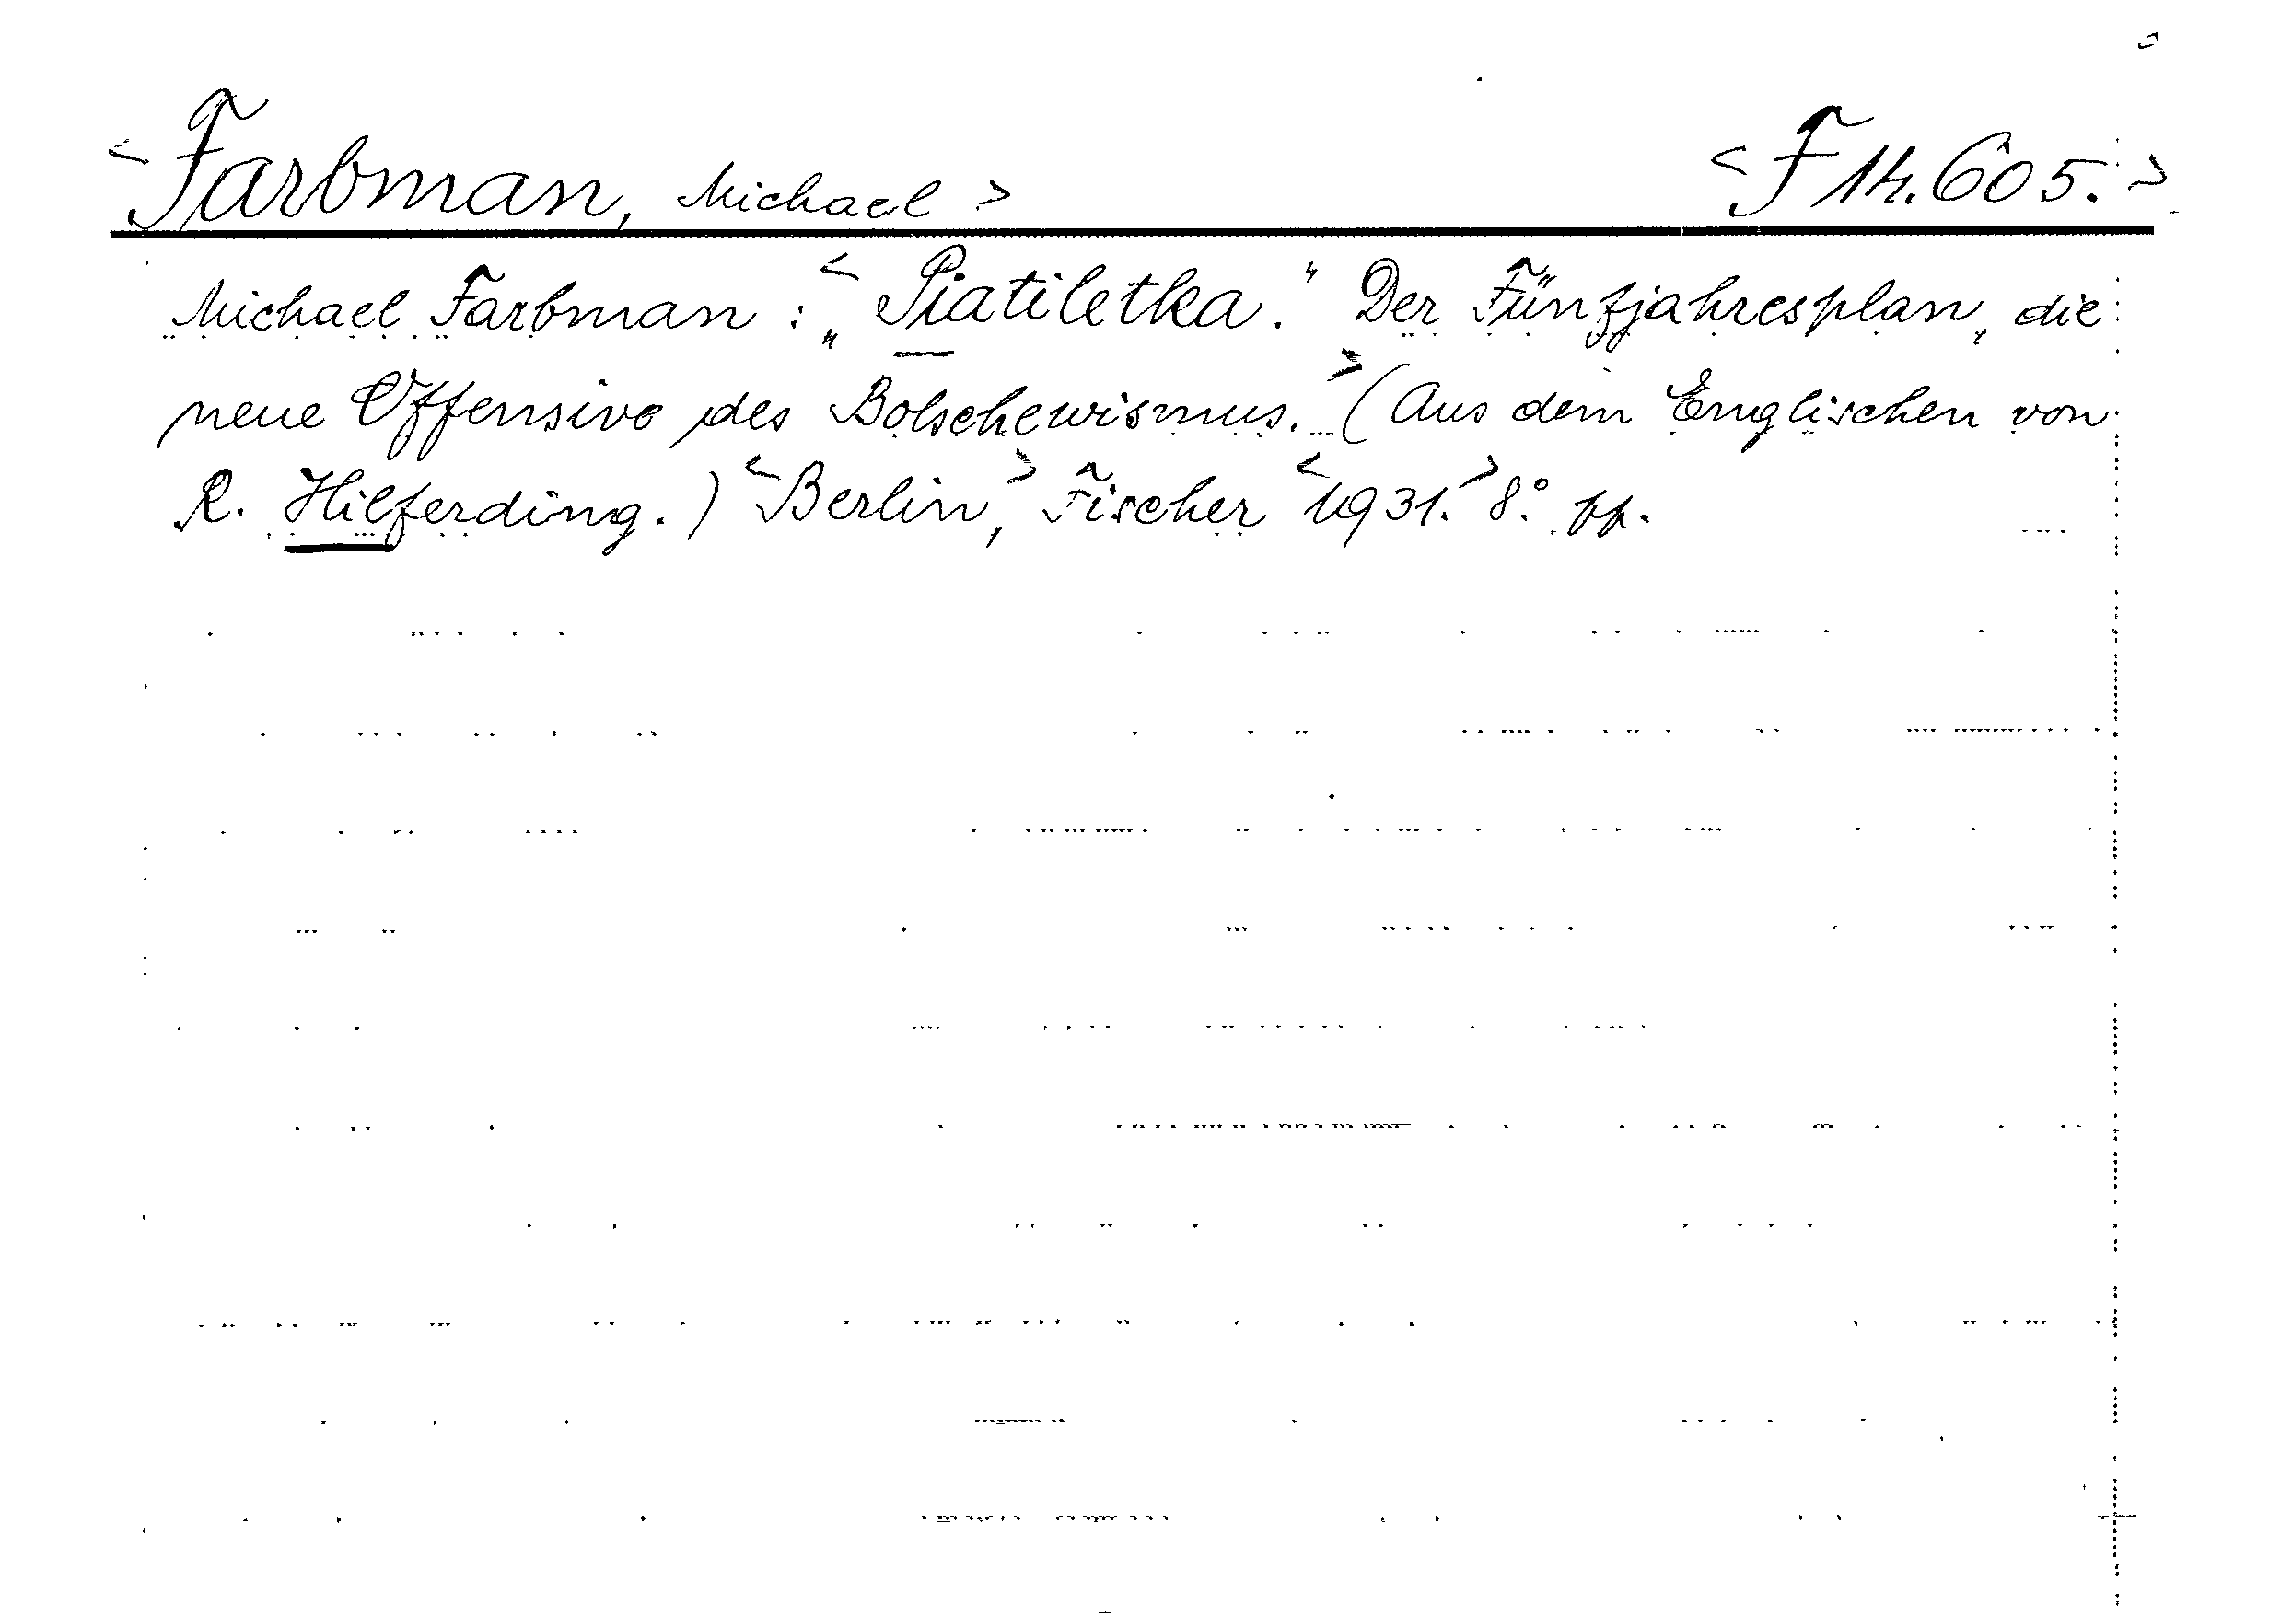 <Farbman, Michael> <F 14.605.>
Michael Farbman: <„Piatiletka." Der Fünfjahresplan, die
neue Offensive des Bolschewismus.> (Aus dem Englischen von
R. Hilferding.) <Berlin,> Fischer <1931.> 8.° pp.